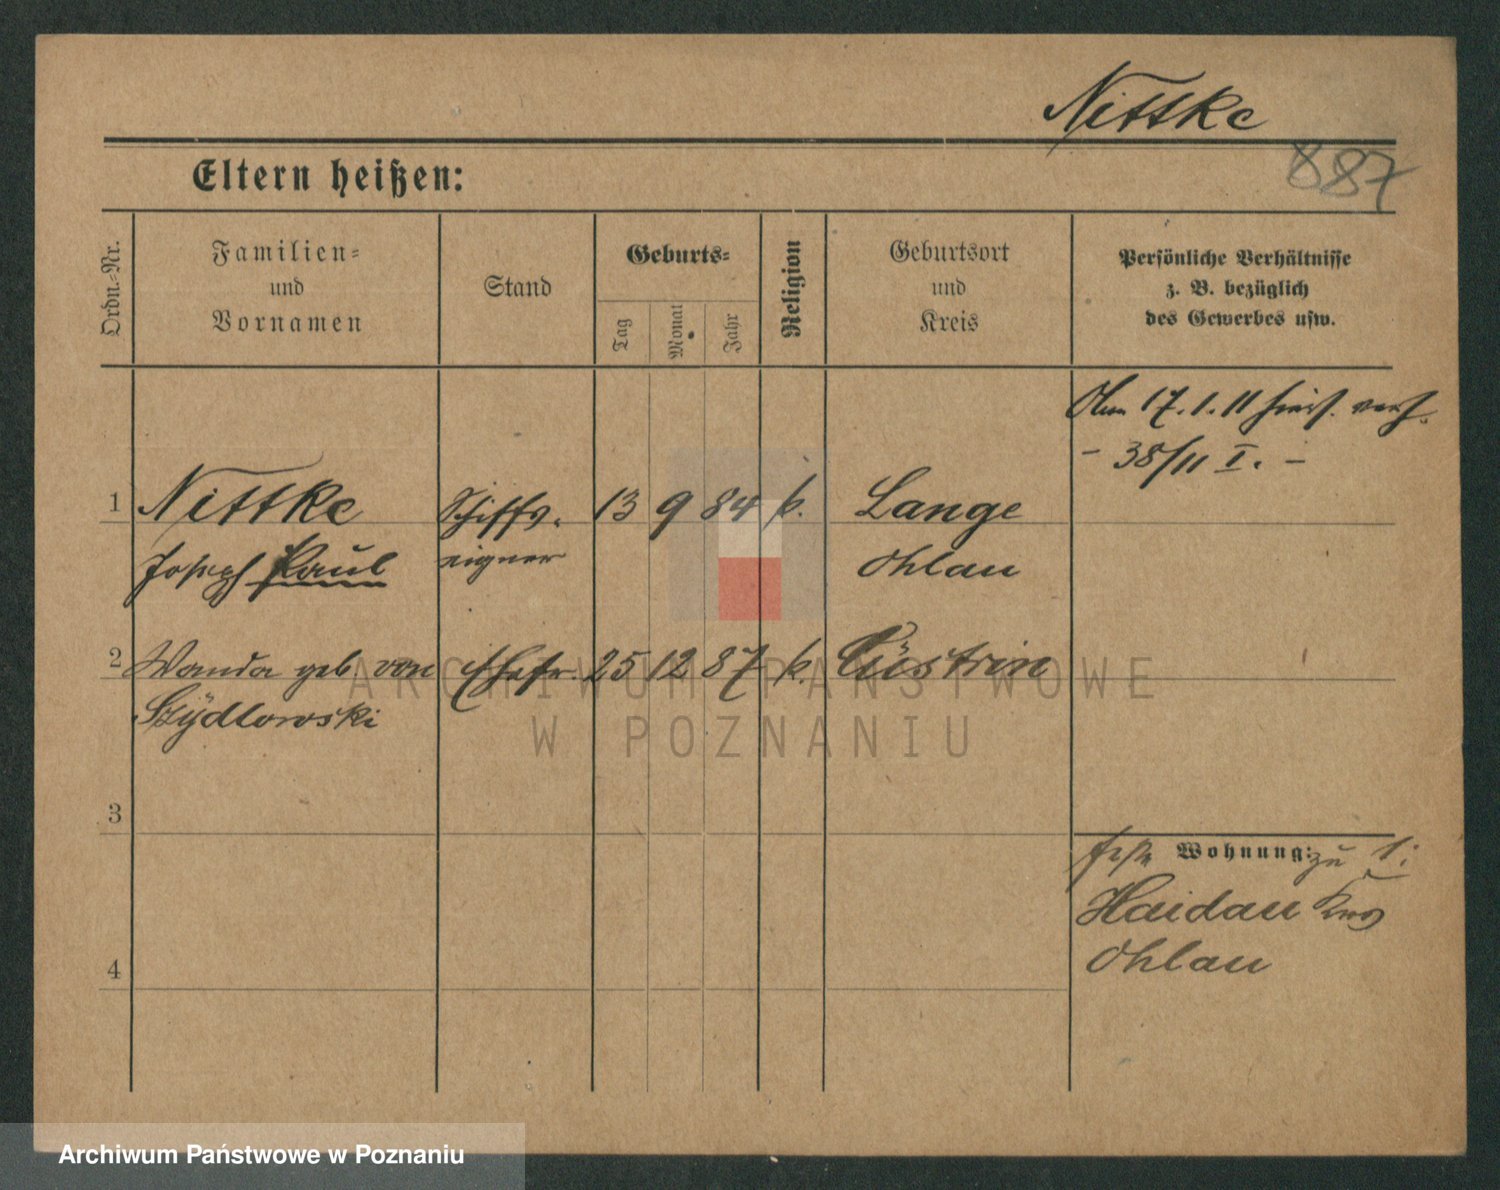 Nittke
887
Eltern heißen:
Ordn.-Nr.
Familien-
und
Vornamen
Stand
Geburts-
Tag
Monat
Jahr
Religion
Geburtsort
und
Kreis
Persönliche Verhältnisse
z. B. bezüglich
des Gewerbes usw.
Am 17.1.11 hier verh.
- 38/11 I. -
1 Nittke Schiffs- 13 9 84 k. Lange
Joseph Paul eigner Ohlau
2 Wanda geb. von Ehefr. 25 12 87 k. Cüstrin
Szydlowski
3
feste Wohnung: zu 1:
Haidau Krs
Ohlau
4
ARCHIWUM PAŃSTWOWE
W POZNANIU
Archiwum Państwowe w Poznaniu